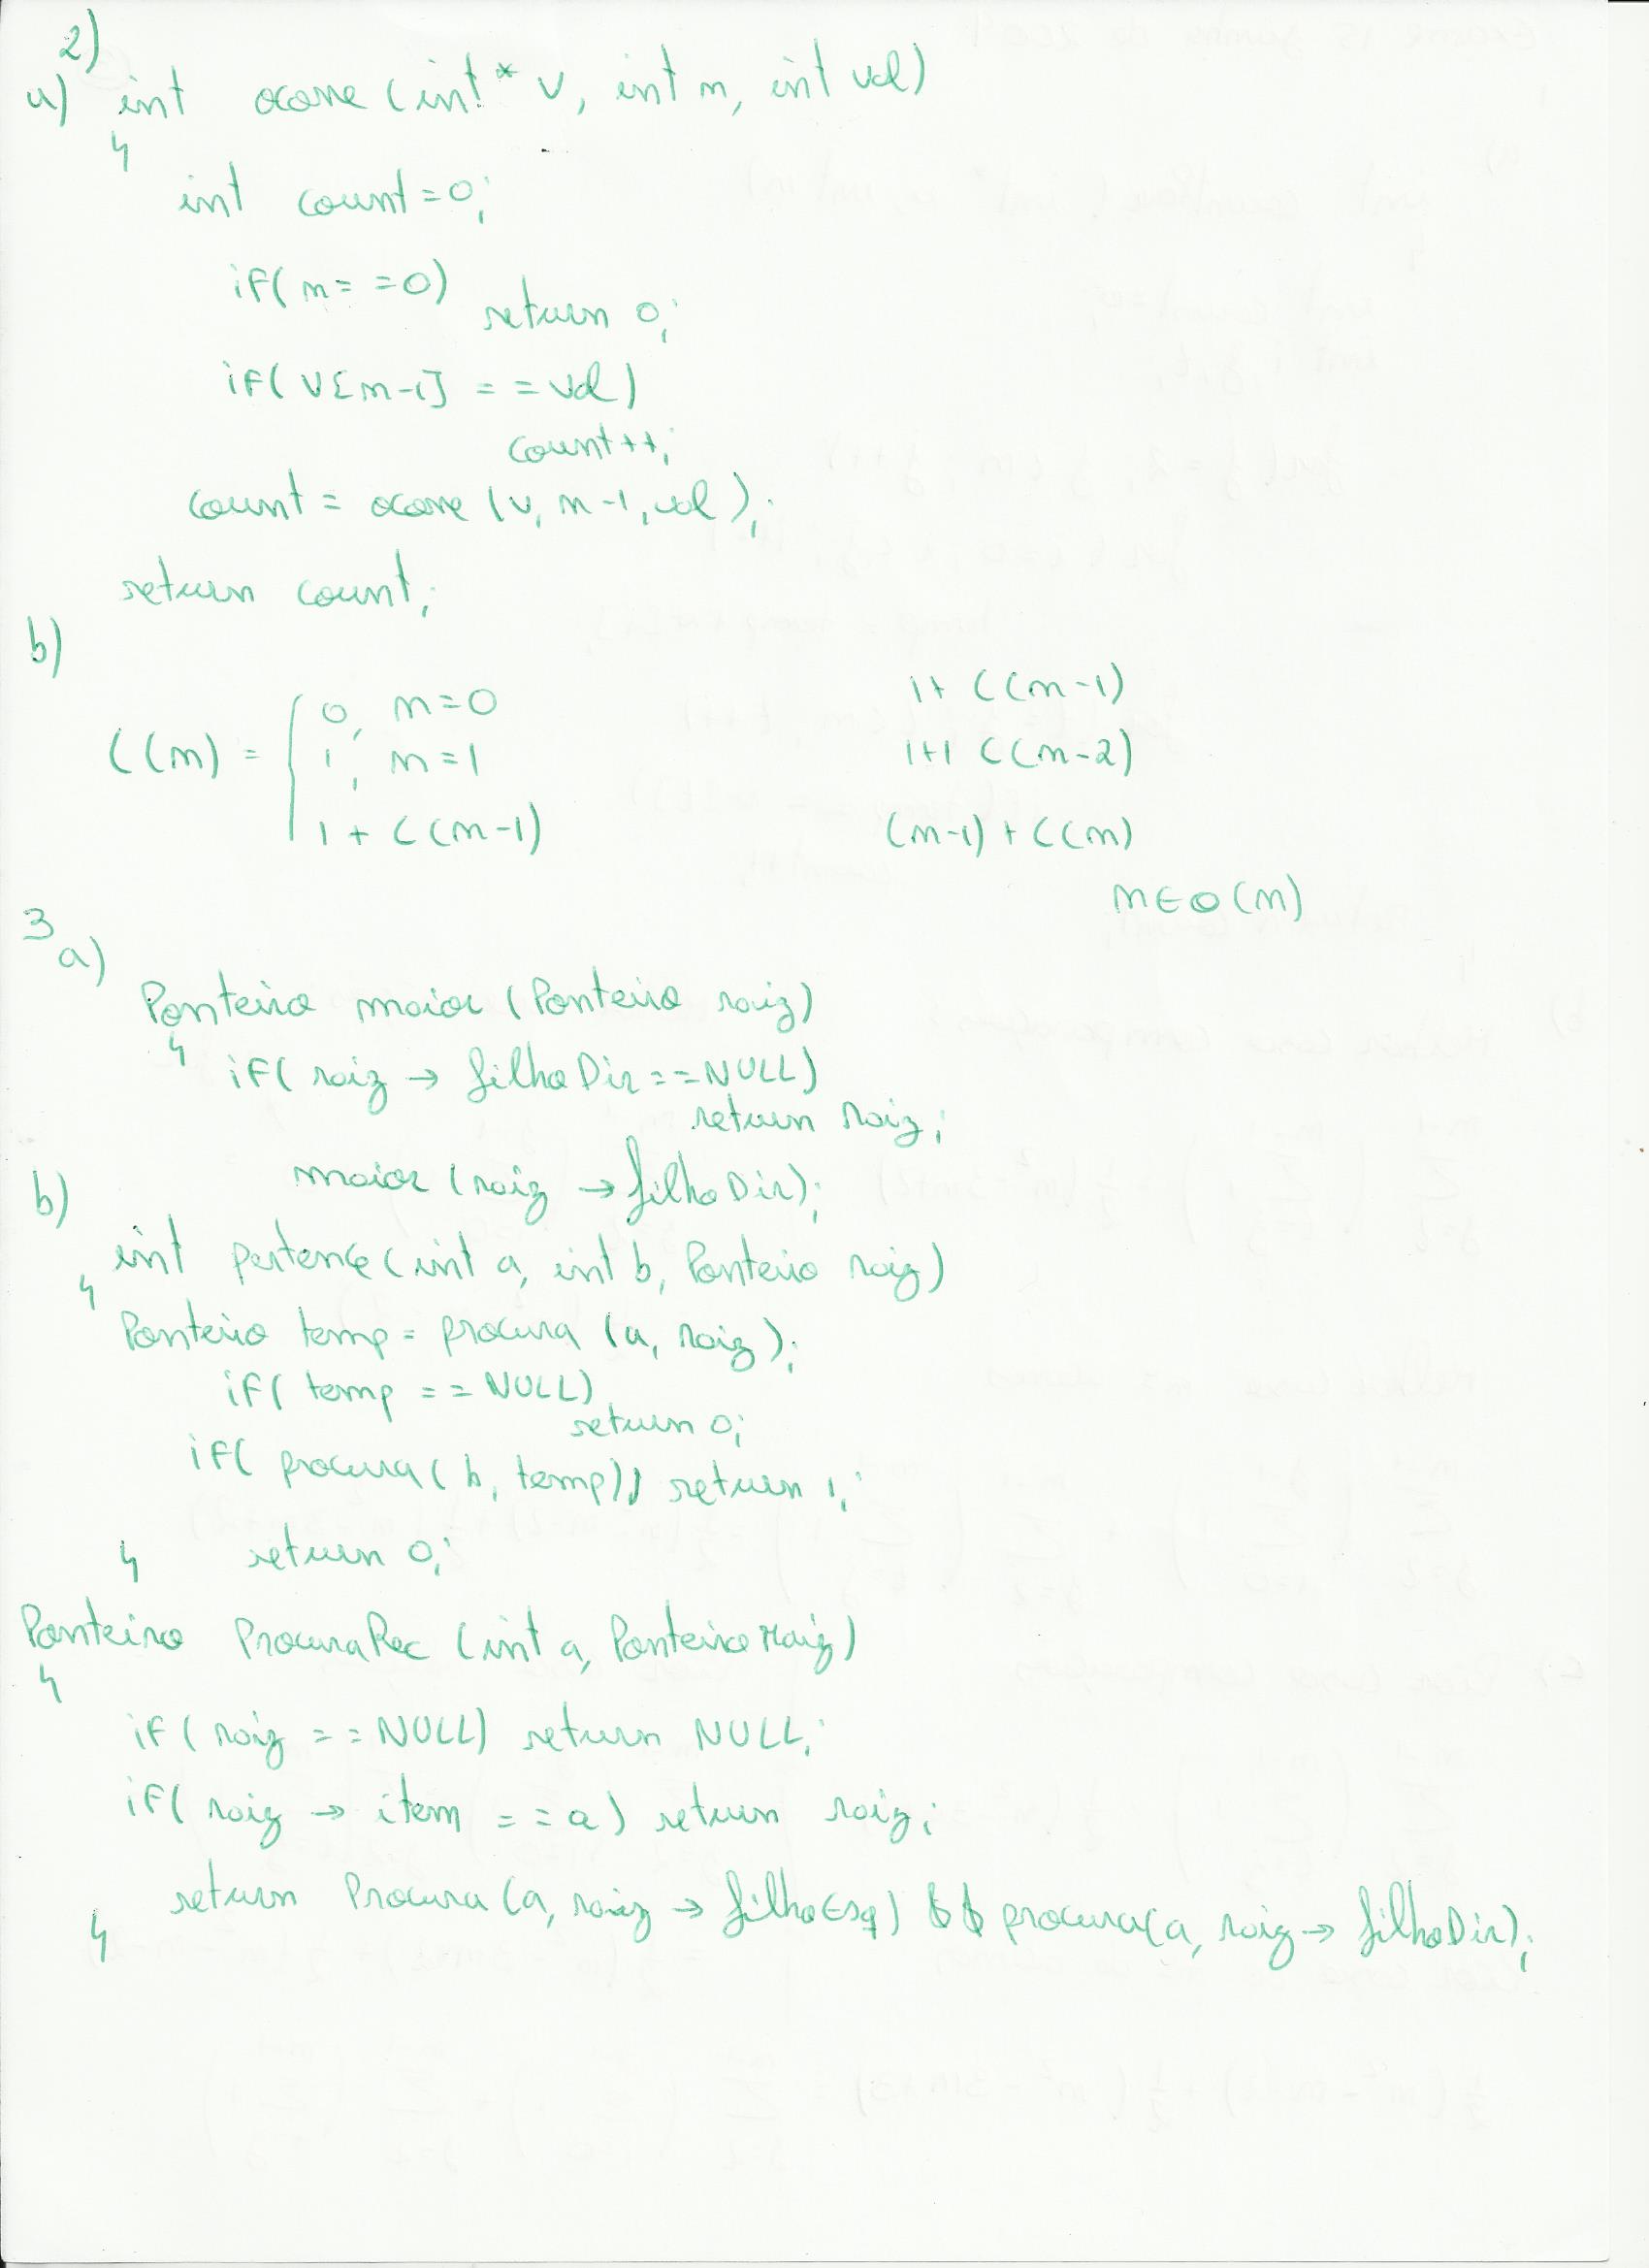 2)
a) int ocorre (int * v, int n, int val)
{
int count=0;
if(n==0) return 0;
if(v[n-1] == val)
count++;
count = ocorre (v, n-1, val);
return count;
b)
C(n) = { 0, n=0
1, n=1
1 + C(n-1)
1+ C(n-1)
1+1 C(n-2)
(n-1) + C(n)
n ∈ O(n)
3
a)
Ponteiro maior (Ponteiro raiz)
{ if( raiz → filhoDir ==NULL)
return raiz;
maior (raiz → filhoDir);
b)
int pertence (int a, int b, Ponteiro raiz)
{
Ponteiro temp = procura (a, raiz);
if( temp == NULL)
return 0;
if( procura( b, temp)) return 1;
} return 0;
Ponteiro ProcuraRec (int a, Ponteiro raiz)
{
if( raiz == NULL) return NULL;
if( raiz → item == a) return raiz;
return Procura (a, raiz → filhoEsq) && procura(a, raiz → filhoDir);
}